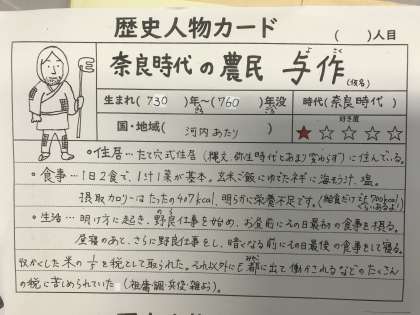 歴史人物カード
( )人目
奈良時代の農民 与作 (仮名)
よ さく
生まれ( 730 )年〜( 760 )年没
ごろ ごろ
時代( 奈良時代 )
国・地域( 河内あたり )
好き度
★☆☆☆☆
○住居…たて穴式住居(縄文、弥生時代とあまり変わらず)に住んでいる。
・食事…1日2食で、1汁1菜が基本。玄米ご飯にゆでたネギに海そう汁、塩。
摂取カロリーはたったの407kcal、明らかに栄養不足です。(給食だけで700kcalくらいあるよ)
・生活…明け方に起き、野良仕事を始め、お昼前にその日最初の食事を摂る。
のら
昼寝のあと、さらに野良仕事をし、暗くなる前にその日最後の食事をして寝る。
収かくした米の を税として取られた。それ以外にも都に出て働かされるなどのたくさん
みやこ
の税に苦しめられていた(租庸調・兵役・雑よう)。